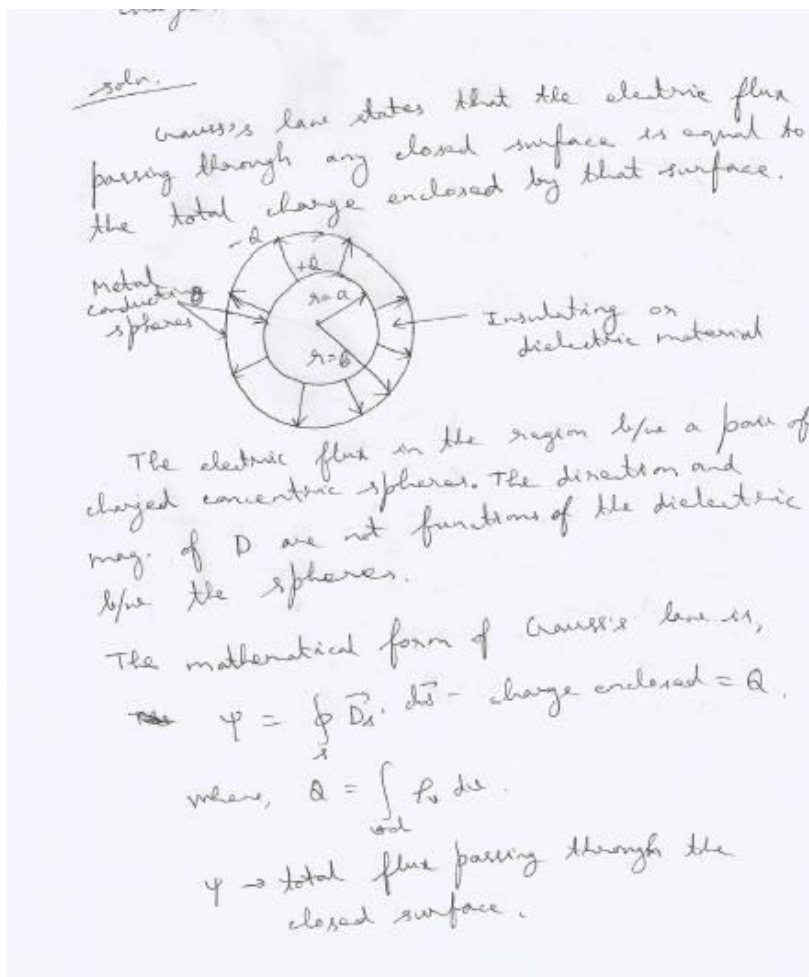 soln.
Gauss's law states that the electric flux
passing through any closed surface is equal to
the total charge enclosed by that surface.
-Q
+Q
Metal
conducting
spheres
r=a
r=b
Insulating or
dielectric material
The electric flux in the region b/w a pair of
charged concentric spheres. The direction and
mag. of D are not functions of the dielectric
b/w the spheres.
The mathematical form of Gauss's law is,
Ψ = ∮s D⃗s. ds⃗ - charge enclosed = Q.
where, Q = ∫vol ρv dv.
Ψ → total flux passing through the
closed surface.